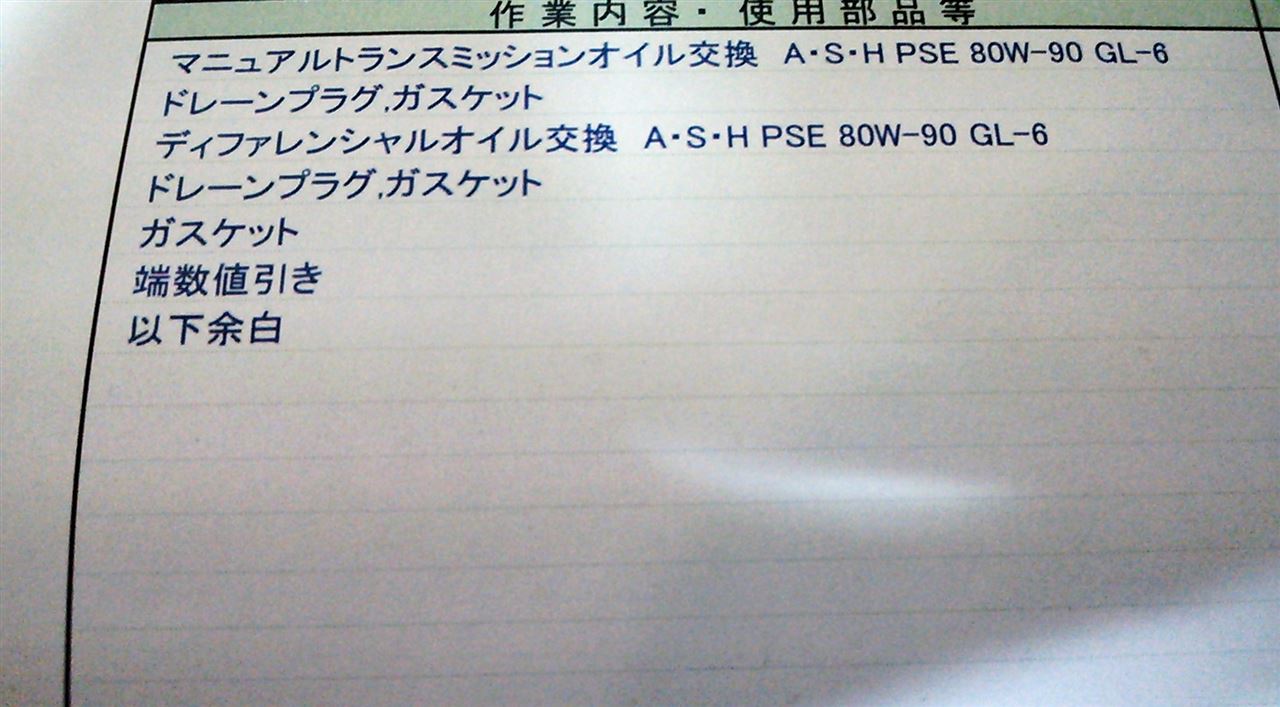 作業内容・使用部品等
マニュアルトランスミッションオイル交換 A・S・H PSE 80W-90 GL-6
ドレーンプラグ,ガスケット
ディファレンシャルオイル交換 A・S・H PSE 80W-90 GL-6
ドレーンプラグ,ガスケット
ガスケット
端数値引き
以下余白